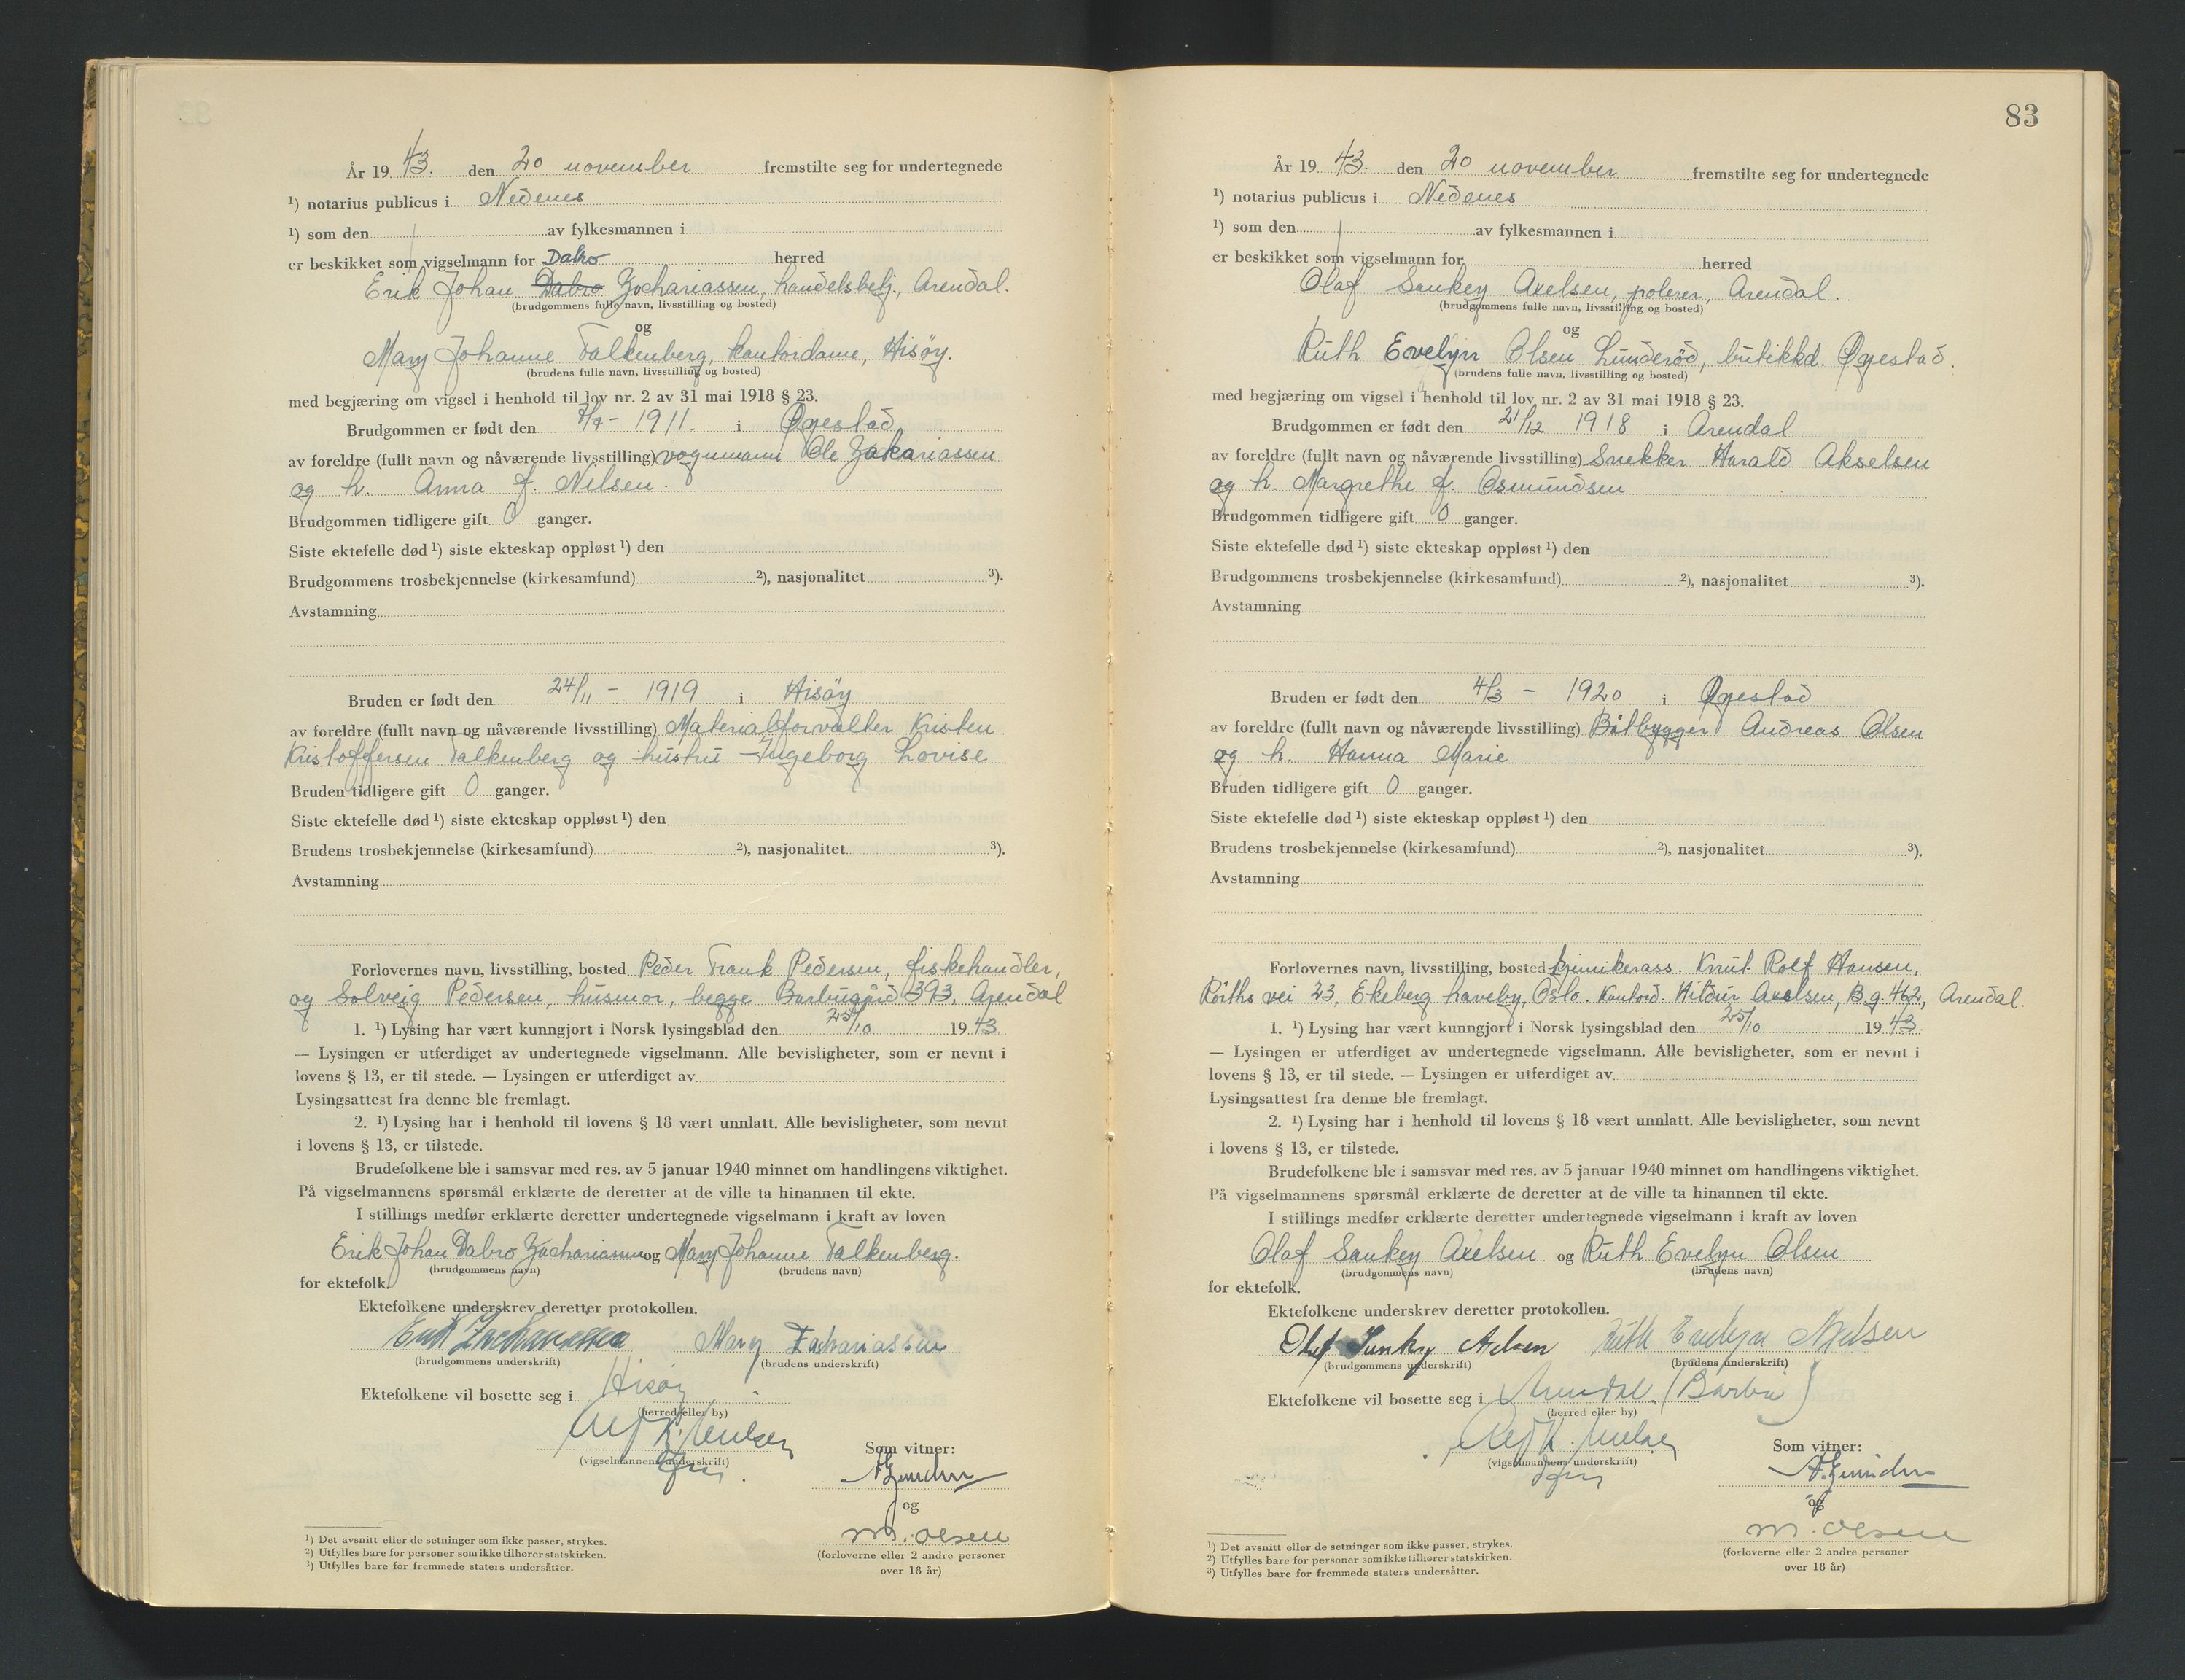 År 19 43. den 20 november fremstilte seg for undertegnede
¹) notarius publicus i Nedenes
¹) som den / av fylkesmannen i
er beskikket som vigselmann for Dabro herred
Erik Johan Dabro Zachariassen, handelsbetj., Arendal.
(brudgommens fulle navn, livsstilling og bosted)
og
Mary Johanne Falkenberg, kontordame, Hisøy.
(brudens fulle navn, livsstilling og bosted)
med begjæring om vigsel i henhold til lov nr. 2 av 31 mai 1918 § 23.
Brudgommen er født den - 1911. i Øyestad
av foreldre (fullt navn og nåværende livsstilling) vognmann Ole Zakariassen
og h. Anna f. Nilsen.
Brudgommen tidligere gift 0 ganger.
Siste ektefelle død ¹) siste ekteskap oppløst ¹) den
Brudgommens trosbekjennelse (kirkesamfund) ²), nasjonalitet ³).
Avstamning
Bruden er født den 24/11 - 1919 i Hisøy
av foreldre (fullt navn og nåværende livsstilling) Materialforvalter Kristen
Kristoffersen Falkenberg og hustru Ingeborg Lovise
Bruden tidligere gift 0 ganger.
Siste ektefelle død ¹) siste ekteskap oppløst ¹) den
Brudens trosbekjennelse (kirkesamfund) ²), nasjonalitet ³).
Avstamning
Forlovernes navn, livsstilling, bosted Peder Frank Pedersen, fiskehandler,
og Solveig Pedersen, husmor, begge Barbugård 393, Arendal
1. ¹) Lysing har vært kunngjort i Norsk lysingsblad den 25/10 1943
— Lysingen er utferdiget av undertegnede vigselmann. Alle bevisligheter, som er nevnt i
lovens § 13, er til stede. — Lysingen er utferdiget av
Lysingsattest fra denne ble fremlagt.
2. ¹) Lysing har i henhold til lovens § 18 vært unnlatt. Alle bevisligheter, som nevnt
i lovens § 13, er tilstede.
Brudefolkene ble i samsvar med res. av 5 januar 1940 minnet om handlingens viktighet.
På vigselmannens spørsmål erklærte de deretter at de ville ta hinannen til ekte.
I stillings medfør erklærte deretter undertegnede vigselmann i kraft av loven
Erik Johan Dabro Zachariassen og Mary Johanne Falkenberg.
(brudgommens navn) (brudens navn)
for ektefolk.
Ektefolkene underskrev deretter protokollen.
Erik Zachariassen Mary Zachariassen
(brudgommens underskrift) (brudens underskrift)
Ektefolkene vil bosette seg i Hisøy
(herred eller by)
Alf K. Nielsen
(vigselmannens underskrift)
Som vitner:
og
M. Olsen
(forloverne eller 2 andre personer
over 18 år)
¹) Det avsnitt eller de setninger som ikke passer, strykes.
²) Utfylles bare for personer som ikke tilhører statskirken.
³) Utfylles bare for fremmede staters undersåtter.
83
År 19 43. den 20 november fremstilte seg for undertegnede
¹) notarius publicus i Nedenes
¹) som den / av fylkesmannen i
er beskikket som vigselmann for herred
Olaf Sankey Axelsen, polerer, Arendal.
(brudgommens fulle navn, livsstilling og bosted)
og
Ruth Evelyn Olsen Lunderød, butikkd. Øyestad.
(brudens fulle navn, livsstilling og bosted)
med begjæring om vigsel i henhold til lov nr. 2 av 31 mai 1918 § 23.
Brudgommen er født den 21/12 1918 i Arendal
av foreldre (fullt navn og nåværende livsstilling) Snekker Harald Akselsen
og h. Margrethe f. Osmundsen
Brudgommen tidligere gift 0 ganger.
Siste ektefelle død ¹) siste ekteskap oppløst ¹) den
Brudgommens trosbekjennelse (kirkesamfund) ²), nasjonalitet ³).
Avstamning
Bruden er født den 4/3 - 1920 i Øyestad
av foreldre (fullt navn og nåværende livsstilling) Båtbygger Andreas Olsen
og h. Hanna Marie
Bruden tidligere gift 0 ganger.
Siste ektefelle død ¹) siste ekteskap oppløst ¹) den
Brudens trosbekjennelse (kirkesamfund) ²), nasjonalitet ³).
Avstamning
Forlovernes navn, livsstilling, bosted kjemikerass. Knut Rolf Hansen,
vei 23, Ekeberg haveby, Oslo. Kontord. Hildur Axelsen, B.g. 462, Arendal.
1. ¹) Lysing har vært kunngjort i Norsk lysingsblad den 25/10 1943.
— Lysingen er utferdiget av undertegnede vigselmann. Alle bevisligheter, som er nevnt i
lovens § 13, er til stede. — Lysingen er utferdiget av
Lysingsattest fra denne ble fremlagt.
2. ¹) Lysing har i henhold til lovens § 18 vært unnlatt. Alle bevisligheter, som nevnt
i lovens § 13, er tilstede.
Brudefolkene ble i samsvar med res. av 5 januar 1940 minnet om handlingens viktighet.
På vigselmannens spørsmål erklærte de deretter at de ville ta hinannen til ekte.
I stillings medfør erklærte deretter undertegnede vigselmann i kraft av loven
Olaf Sankey Axelsen og Ruth Evelyn Olsen
(brudgommens navn) (brudens navn)
for ektefolk.
Ektefolkene underskrev deretter protokollen.
Olaf Sankey Axelsen Ruth Evelyn Axelsen
(brudgommens underskrift) (brudens underskrift)
Ektefolkene vil bosette seg i Arendal (Barbu)
(herred eller by)
Alf K. Nielsen
(vigselmannens underskrift)
Som vitner:
og
M. Olsen
(forloverne eller 2 andre personer
over 18 år)
¹) Det avsnitt eller de setninger som ikke passer, strykes.
²) Utfylles bare for personer som ikke tilhører statskirken.
³) Utfylles bare for fremmede staters undersåtter.